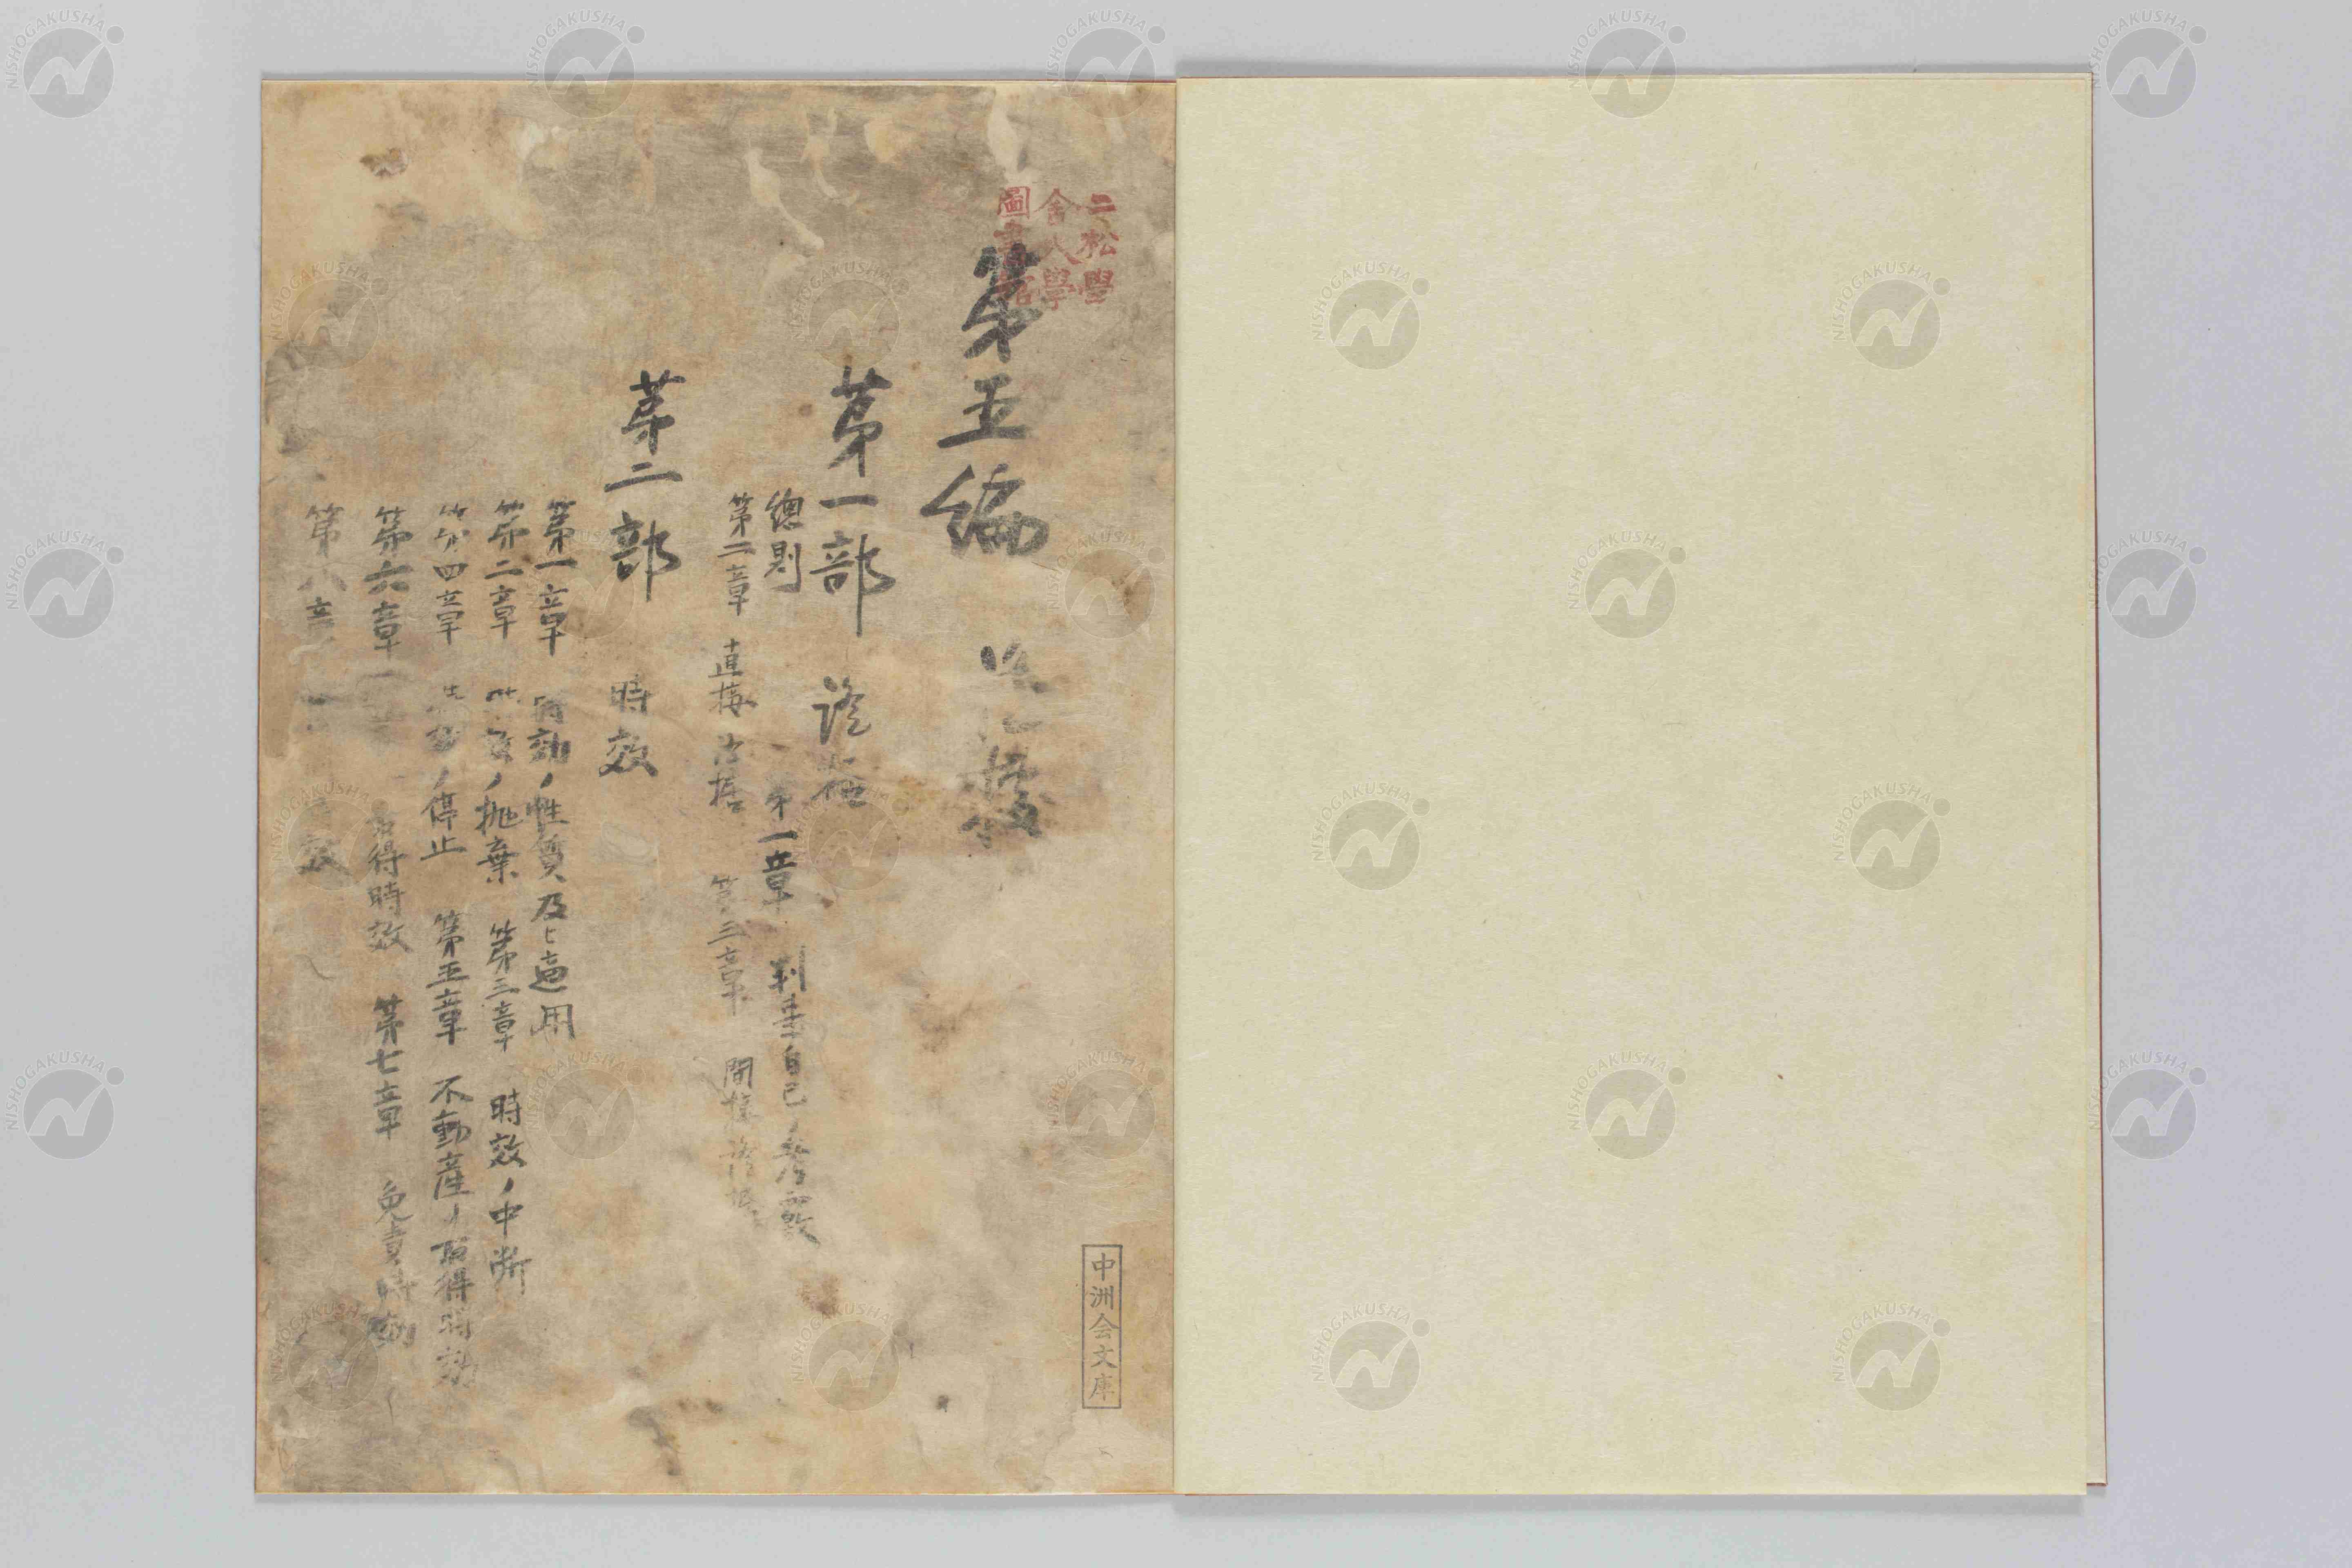 二松學
舍大學
圖書館
第五編 證據
第一部 證據
總則 第一章 判事自己ノ考覈
第二章 直接證據 第三章 間接證據
第二部 時效
第一章 時効ノ性質及ヒ適用
第二章 時效ノ抛棄 第三章 時效ノ中断
第四章 時効ノ停止 第五章 不動産ノ取得時効
第六章 取得時效 第七章 免責時効
第八章 效
中洲会文庫
NISHOGAKUSHA